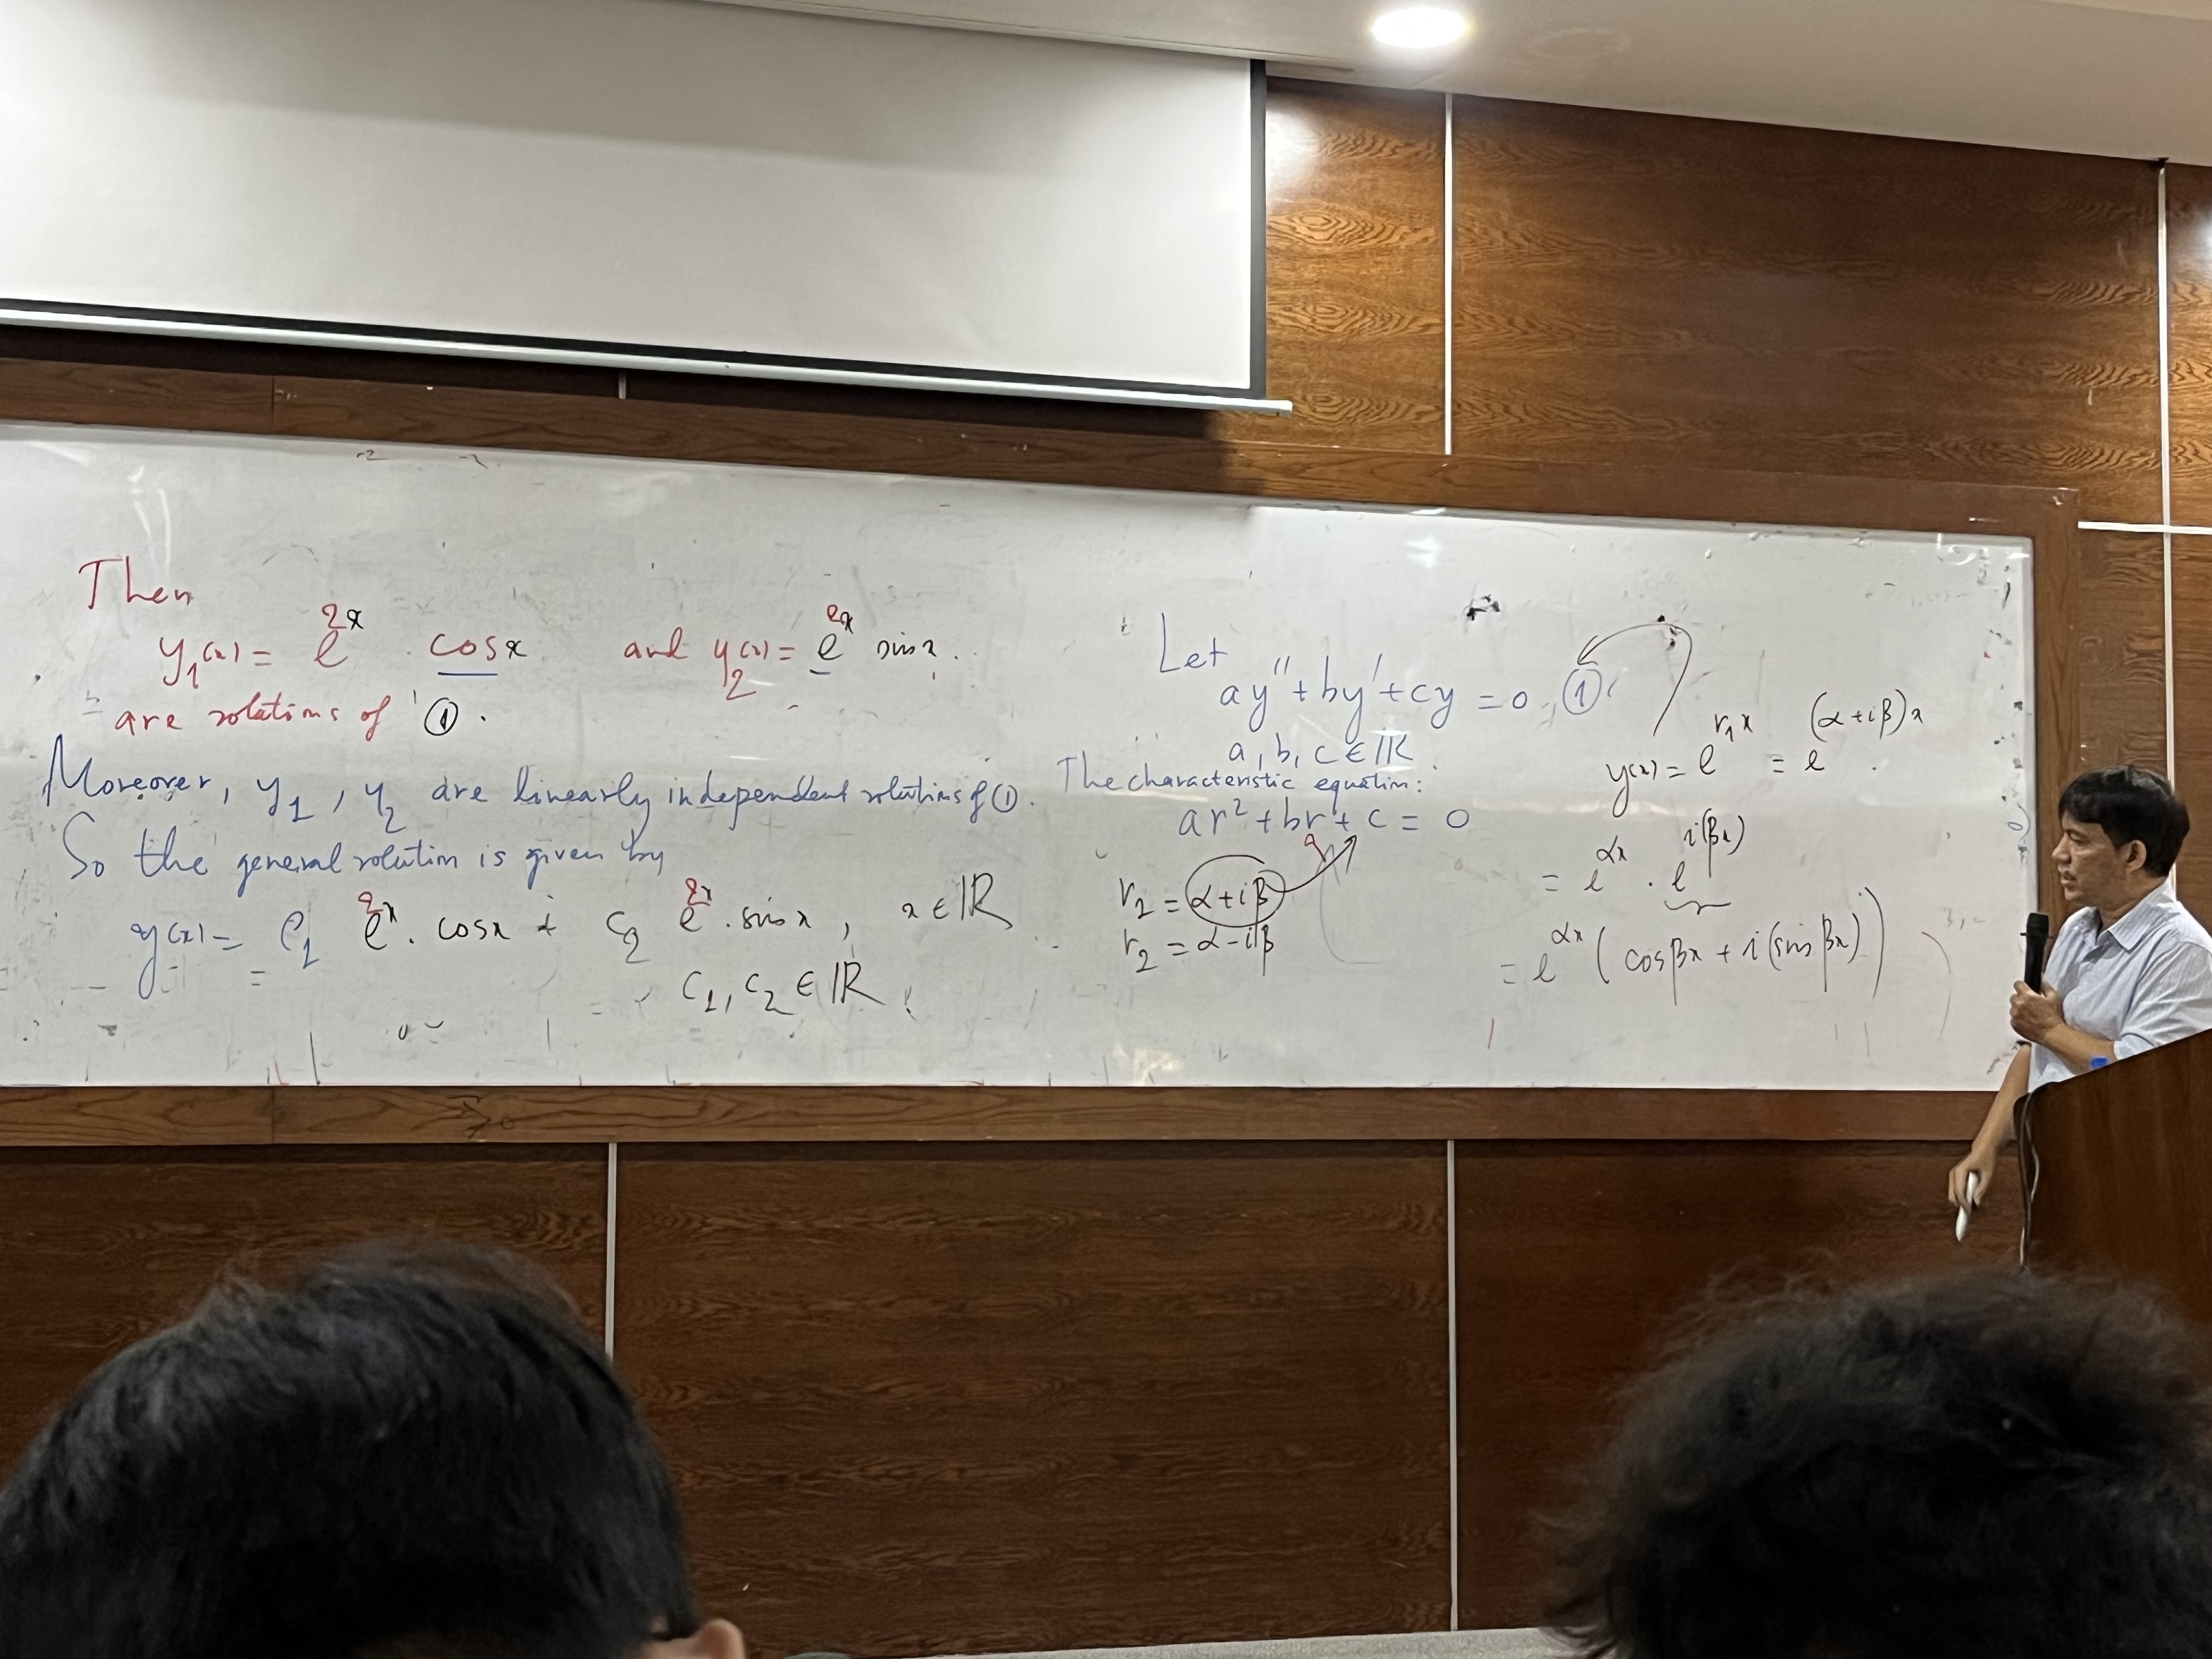 Then
y₁(x) = e²ˣ . cosx and y₂(x) = e²ˣ sinx.
are solutions of ①.
Moreover, y₁, y₂ are linearly independent solutions of ①.
So the general solution is given by
y(x) = C₁ e²ˣ. cosx + C₂ e²ˣ. sinx, x ∈ ℝ
C₁, C₂ ∈ ℝ.
Let
ay'' + by' + cy = 0, ①
a, b, c ∈ ℝ.
The characteristic equation:
ar² + br + c = 0
r₂ = α + iβ
r₂ = α - iβ
y(x) = e^{r₁x} = e^{(α+iβ)x}.
= e^{αx} . e^{i(βx)}
= e^{αx} (cosβx + i(sinβx))